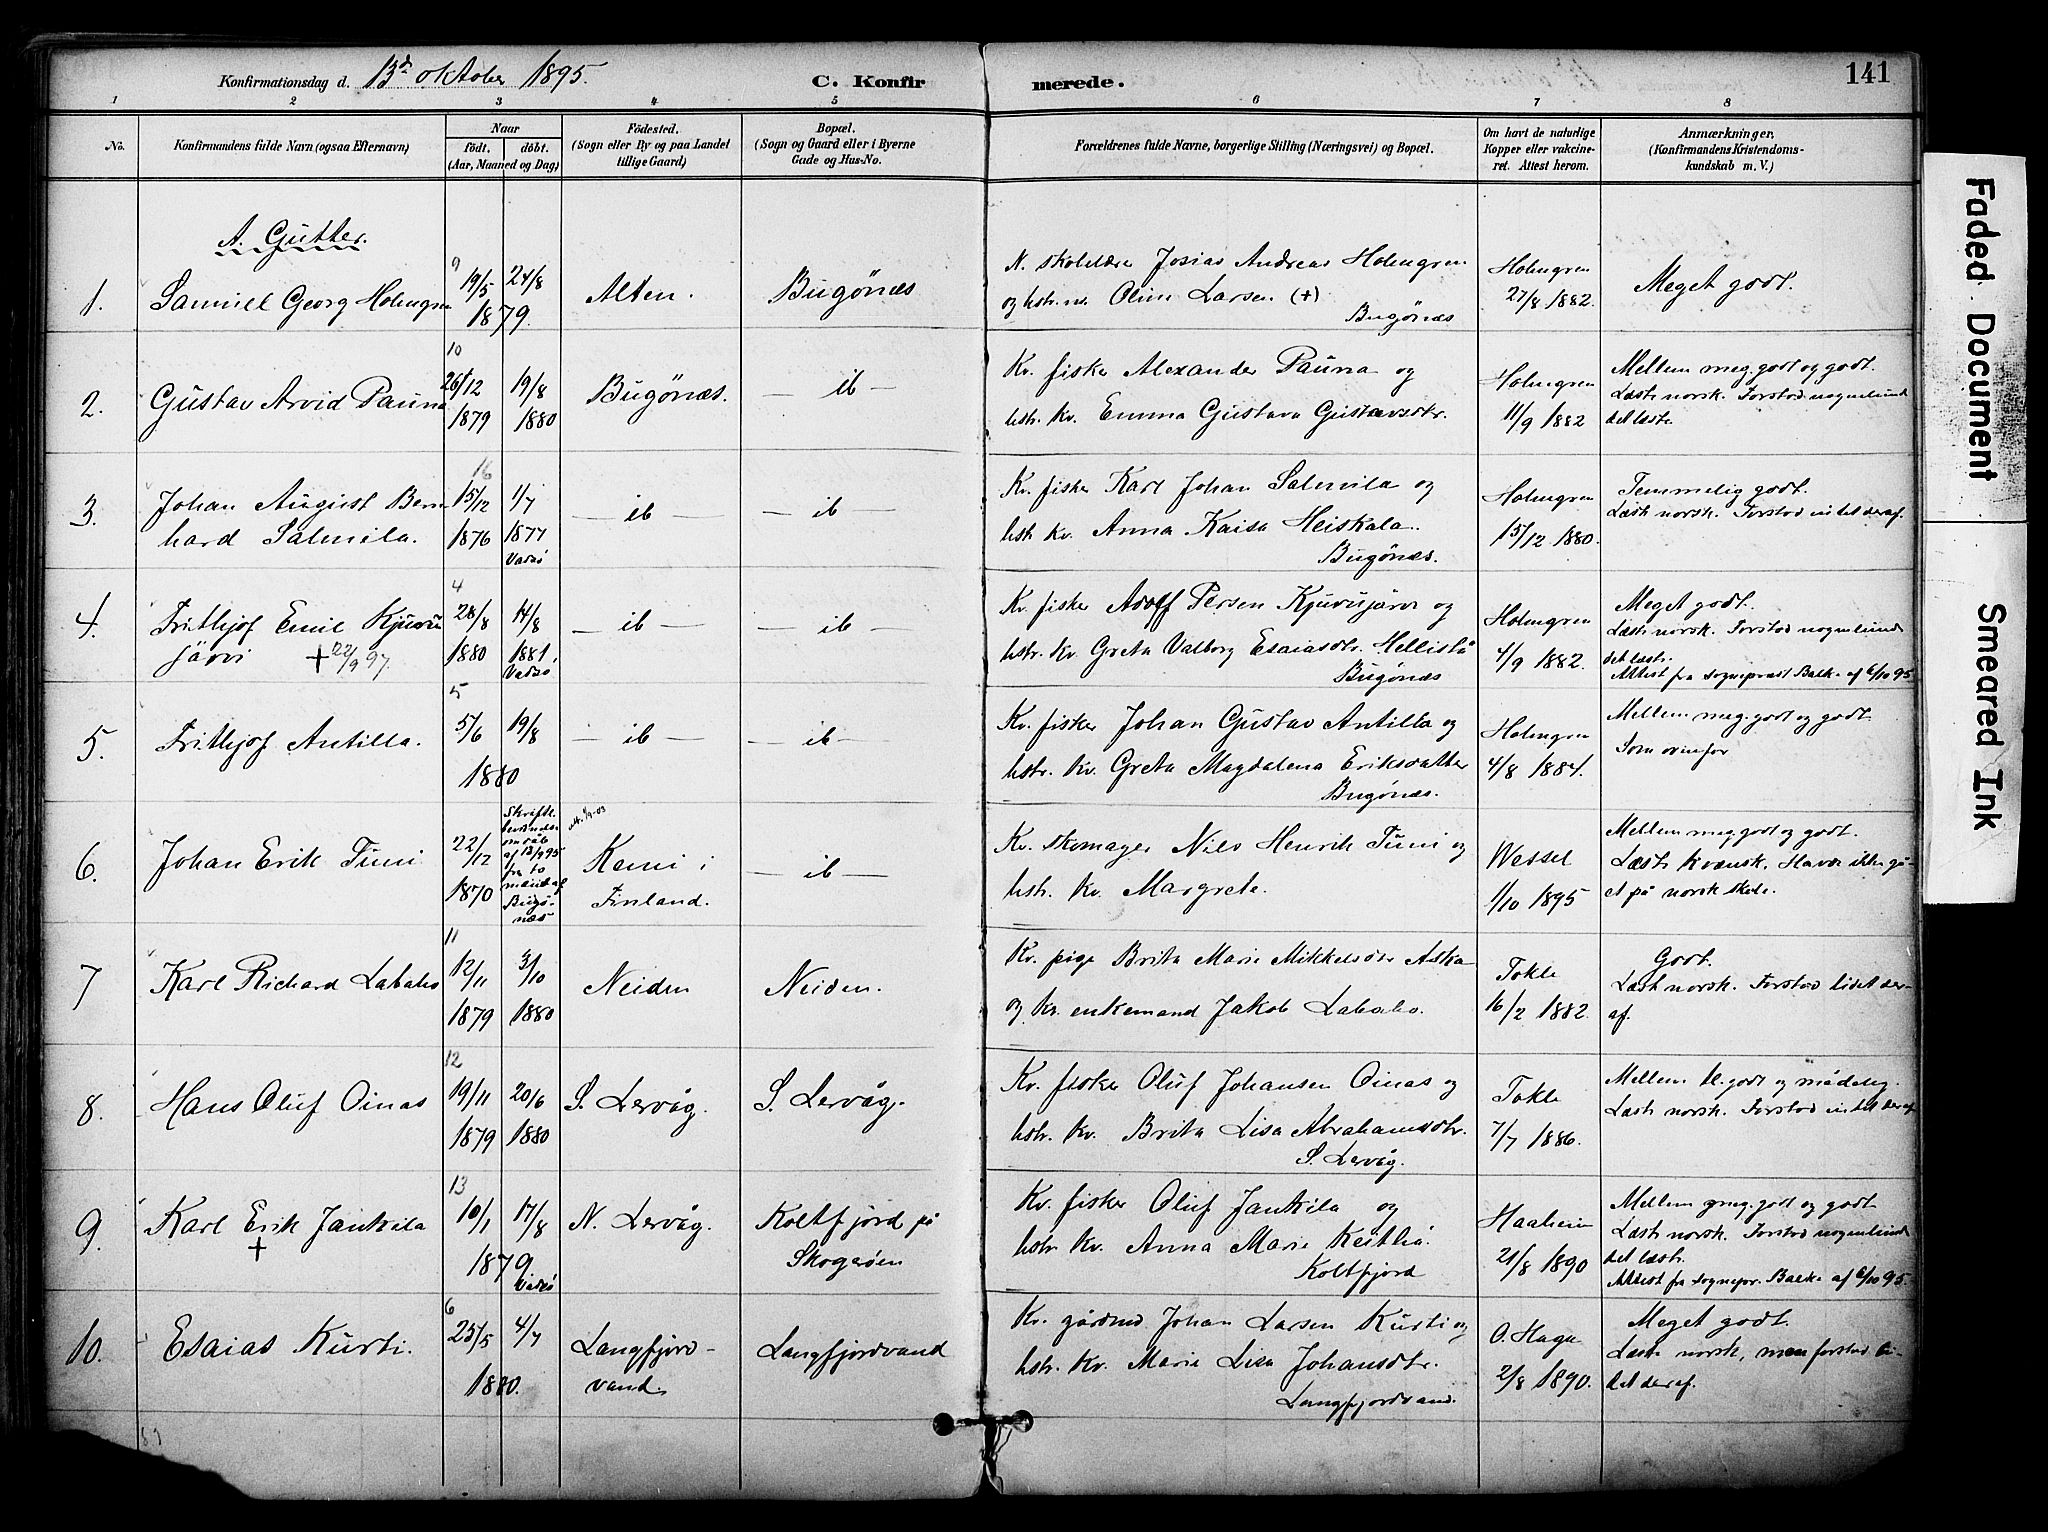 Konfirmationsdag d. 13de oktober 1895.
C. Konfirmerede.
141
1 2 3 4 5 6 7 8
No.
Konfirmandens fulde Navn (ogsaa Efternavn)
Naar
födt. döbt.
(Aar, Maaned og Dag)
Födested.
(Sogn eller By og paa Landet
tillige Gaard)
Bopæl.
(Sogn og Gaard eller i Byerne
Gade og Hus-No.
Forældrenes fulde Navne, borgerlige Stilling (Næringsvei) og Bopæl.
Om havt de naturlige
Kopper eller vakcine-
ret. Attest herom.
Anmærkninger.
(Konfirmandens Kristendoms-
kundskab m. V.)
A. Gutter.
1.
Samuel Georg Holmgren
9
19/5 24/8
1879.
Alten.
Bugönæs
N. skolelærer Josias Andreas Holmgren
og hstr. n. Oline Larsen (+)
Bugönæs
Holmgren
27/8 1882.
Meget godt.
2.
Gustav Arvid Pauna
10
26/12 19/8
1879 1880
Bugönæs.
— ib —
Kv. fisker Alexander Pauna og
hstr. kv. Emma Gustava Gustavsdtr.
Holmgren
11/9 1882
Mellem meg. godt og godt.
Læste norsk. Forstod nogenlunde
det læste.
3.
Johan August Bern
hard Salmila.
16
15/12 1/7
1876 1877
Vadsö
— ib —
— ib —
Kv. fisker Karl Johan Salmila og
hstr kv. Anna Kaisa Heiskala.
Bugönæs.
Holmgren
15/12 1880.
Temmelig godt.
Læste norsk. Forstod intet deraf.
4.
Frithjof Emil Kjuvu
järvi + 22/9 97.
4
28/8 14/8
1880 1881
Vadsö
— ib —
— ib —
Kv. fisker Adolf Persen Kjuvujärvi og
hstr. kv. Greta Valborg Esaiasdtr. Hellistä
Bugönæs
Holmgren
4/9 1882.
Meget godt.
Læste norsk. Forstod nogenlunde
det læste.
Attest fra sognepræst Balke af 6/10 95
5.
Frithjof Antilla.
5
5/6 19/8
1880
— ib —
— ib —
Kv. fisker Johan Gustav Antilla og
hstr. kv. Greta Magdalena Eriksdatter
Bugönæs.
Holmgren
4/8 1884.
Mellem meg. godt og godt
Som ovenfor
6.
Johan Erik Tuni
22/12
1870
Skriftl.
om dåb
af 13/9 95
fra to
mænd af
Bugö-
næs
Kemi i
Finland.
— ib —
Kv. skomager Nils Henrik Tuni og
hstr. kv. Margrete.
Wessel
1/10 1895
Mellem meg. godt og godt.
Læste kvænsk. Havde ikke gå-
et på norsk skole.
7
Karl Richard Labaho
11
12/11 3/10
1879 1880
Neiden
Neiden.
Kv. pige Brita Marie Mikkelsdtr Aska
og kv. enkemand Jakob Labaho.
Tokle
16/2 1882.
Godt.
Læste norsk. Forstod lidet der-
af.
8.
Hans Oluf Oinas
12
19/11 20/6
1879 1880
S. Lervåg.
S. Lervåg.
Kv. fisker Oluf Johansen Oinas og
hstr. kv. Brita Lisa Abrahamsdtr.
S. Lervåg.
Tokle
7/7 1886.
Mellem tl. godt og mådelig.
Læste norsk. Forstod intet deraf
9.
Karl Erik Jankila
+
13
10/1 17/8
1879
Vadsö
N. Lervåg.
Koltfjord på
Skogeröen
Kv. fisker Oluf Jankila og
hstr kv. Anna Marie Keitha.
Koltfjord
Haaheim
21/8 1890
Mellem meg. godt og godt
Læste norsk. Forstod nogenlunde
det læste.
Attest fra sognepr. Balke af 6/10 95.
10.
Esaias Kurti.
6
25/5 4/7
1880.
Langfjord-
vand.
Langfjordvand
Kv. gårdmd Johan Larsen Kurti og
hstr. kv. Marie Lisa Johansdtr.
Langfjordvand.
O. Haga
2/8 1890.
Meget godt.
Læste norsk, men forstod li-
det deraf.
Faded Document
Smeared Ink